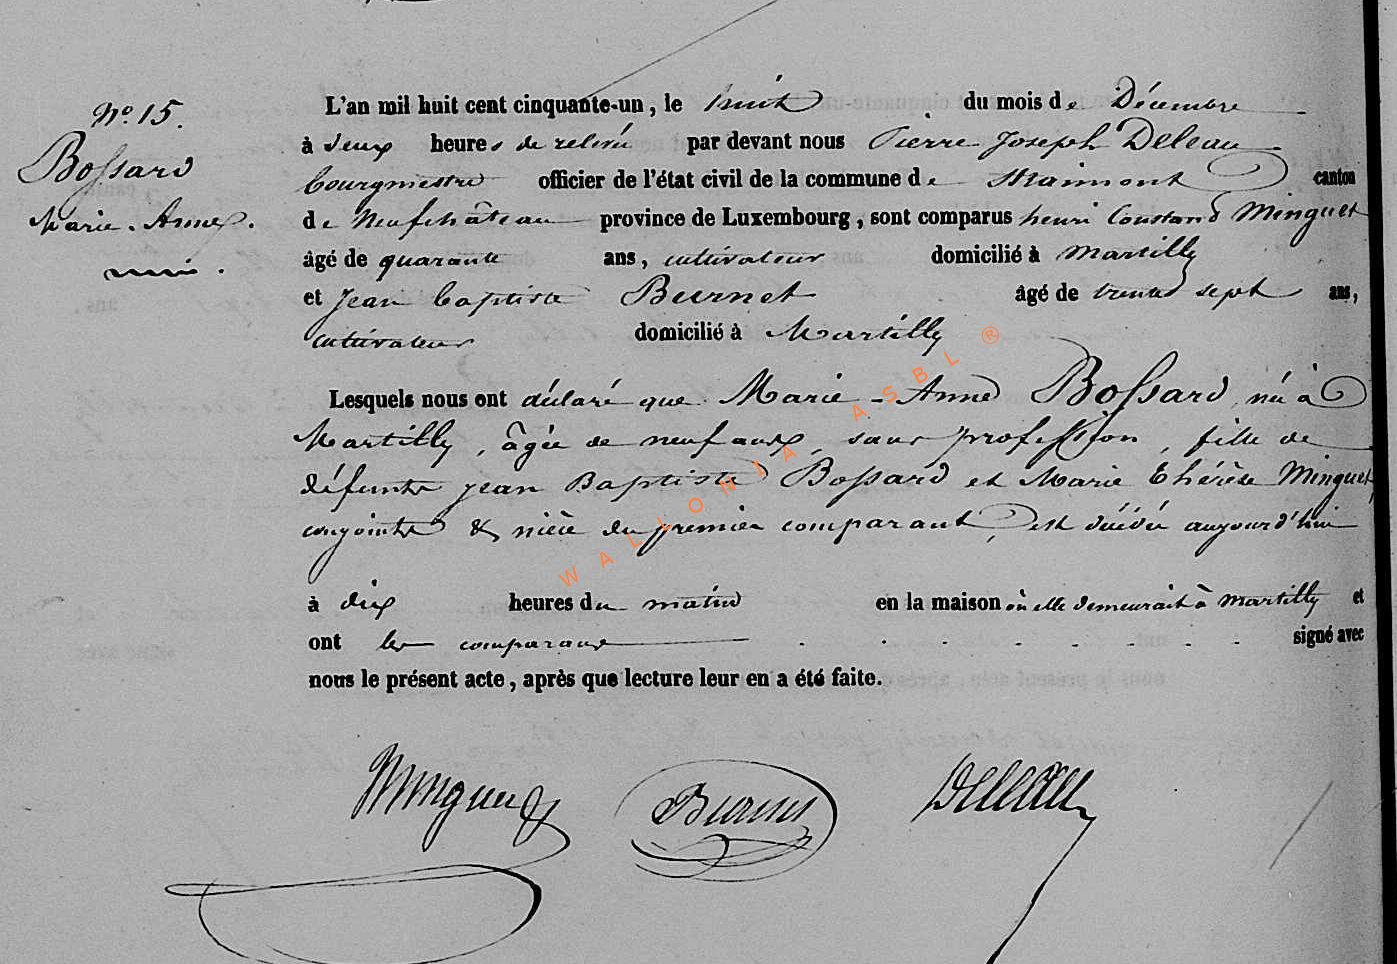 N.° 15.
Bossard
Marie-Anne.
L'an mil huit cent cinquante-un, le huit du mois de Décembre
à deux heures de relevée par devant nous Pierre Joseph Deleau
bourgmestre officier de l'état civil de la commune de Straimont canton
de Neufchâteau province de Luxembourg, sont comparus henri Constand Minguet
âgé de quarante ans, cultivateur domicilié à Martilly
et Jean Baptiste Burnet âgé de trente sept ans,
cultivateur domicilié à Martilly
Lesquels nous ont déclaré que Marie-Anne Bossard, née à
Martilly, âgée de neuf ans, sans profession, fille de
défunts Jean Baptiste Bossard et Marie Thérèse Minguet,
conjoints & nièce du premier comparant, est décédée aujourd'hui
à dix heures du matin en la maison où elle demeurait à Martilly et
ont les comparans signé avec
nous le présent acte, après que lecture leur en a été faite.
Minguet Burnet Deleau
WALLONIA ASBL ®